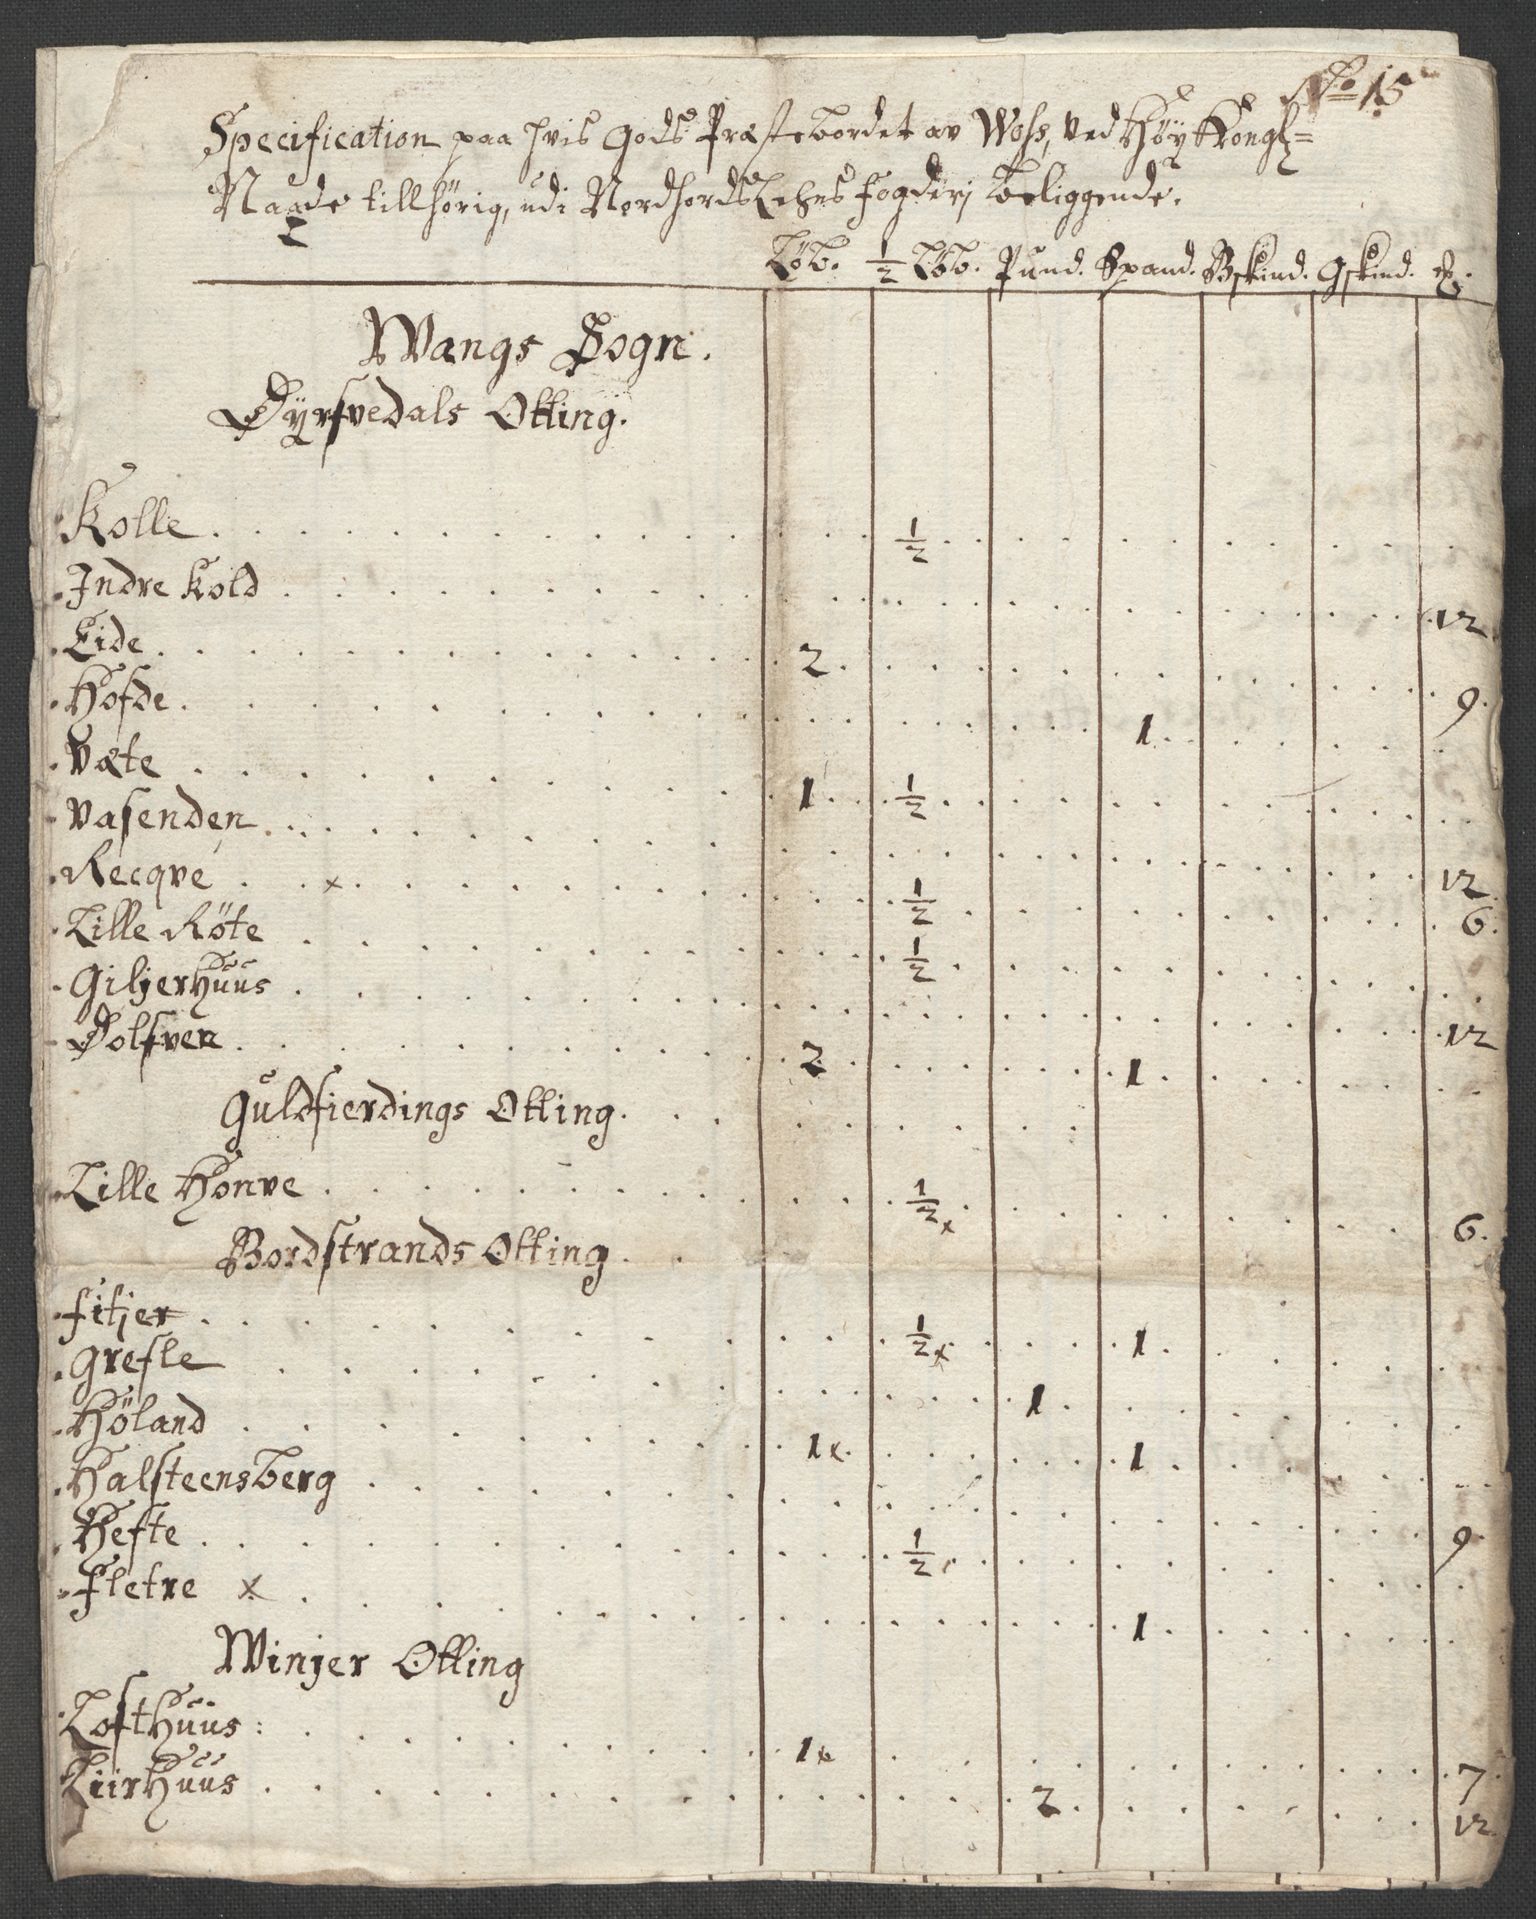 No 15
Specification paa hvis Gods Præstebordet av Woss, ved Höy Kongl=
Naade tillhörig, udi Nordhordslehns fogderj beliggende.
Löb. 1/2 Löb. Pund. Spand. Bskind. Gskind.
Wangs Sogn.
Dyrfvedals Otting.
Kolle 1/2
Indre Kold 12
Eide 2 9
Hofde 1
Væte 1 1/2
Vasenden 12
Recqve x 1/2 6
Lille Röte 1/2
Giljerhuus 12
Dolfven 2 1
Guldfierdings Otting.
Lille Honve 1/2 x 6
Bordstrands Otting
Fitjer 1/2 x 1
Grefle 1
Höland 1 x 1
Halsteensberg 9
Hefte 1/2
Fletre x 1
Winjer Otting
Lofthuus: 1 x 7
Liirhuus 2 12